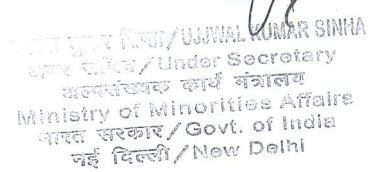 कुमार सिन्हा/UJJWAL KUMAR SINHA
अवर सचिव/Under Secretary
अल्पसंख्यक कार्य मंत्रालय
Ministry of Minorities Affairs
भारत सरकार/Govt. of India
नई दिल्ली/New Delhi